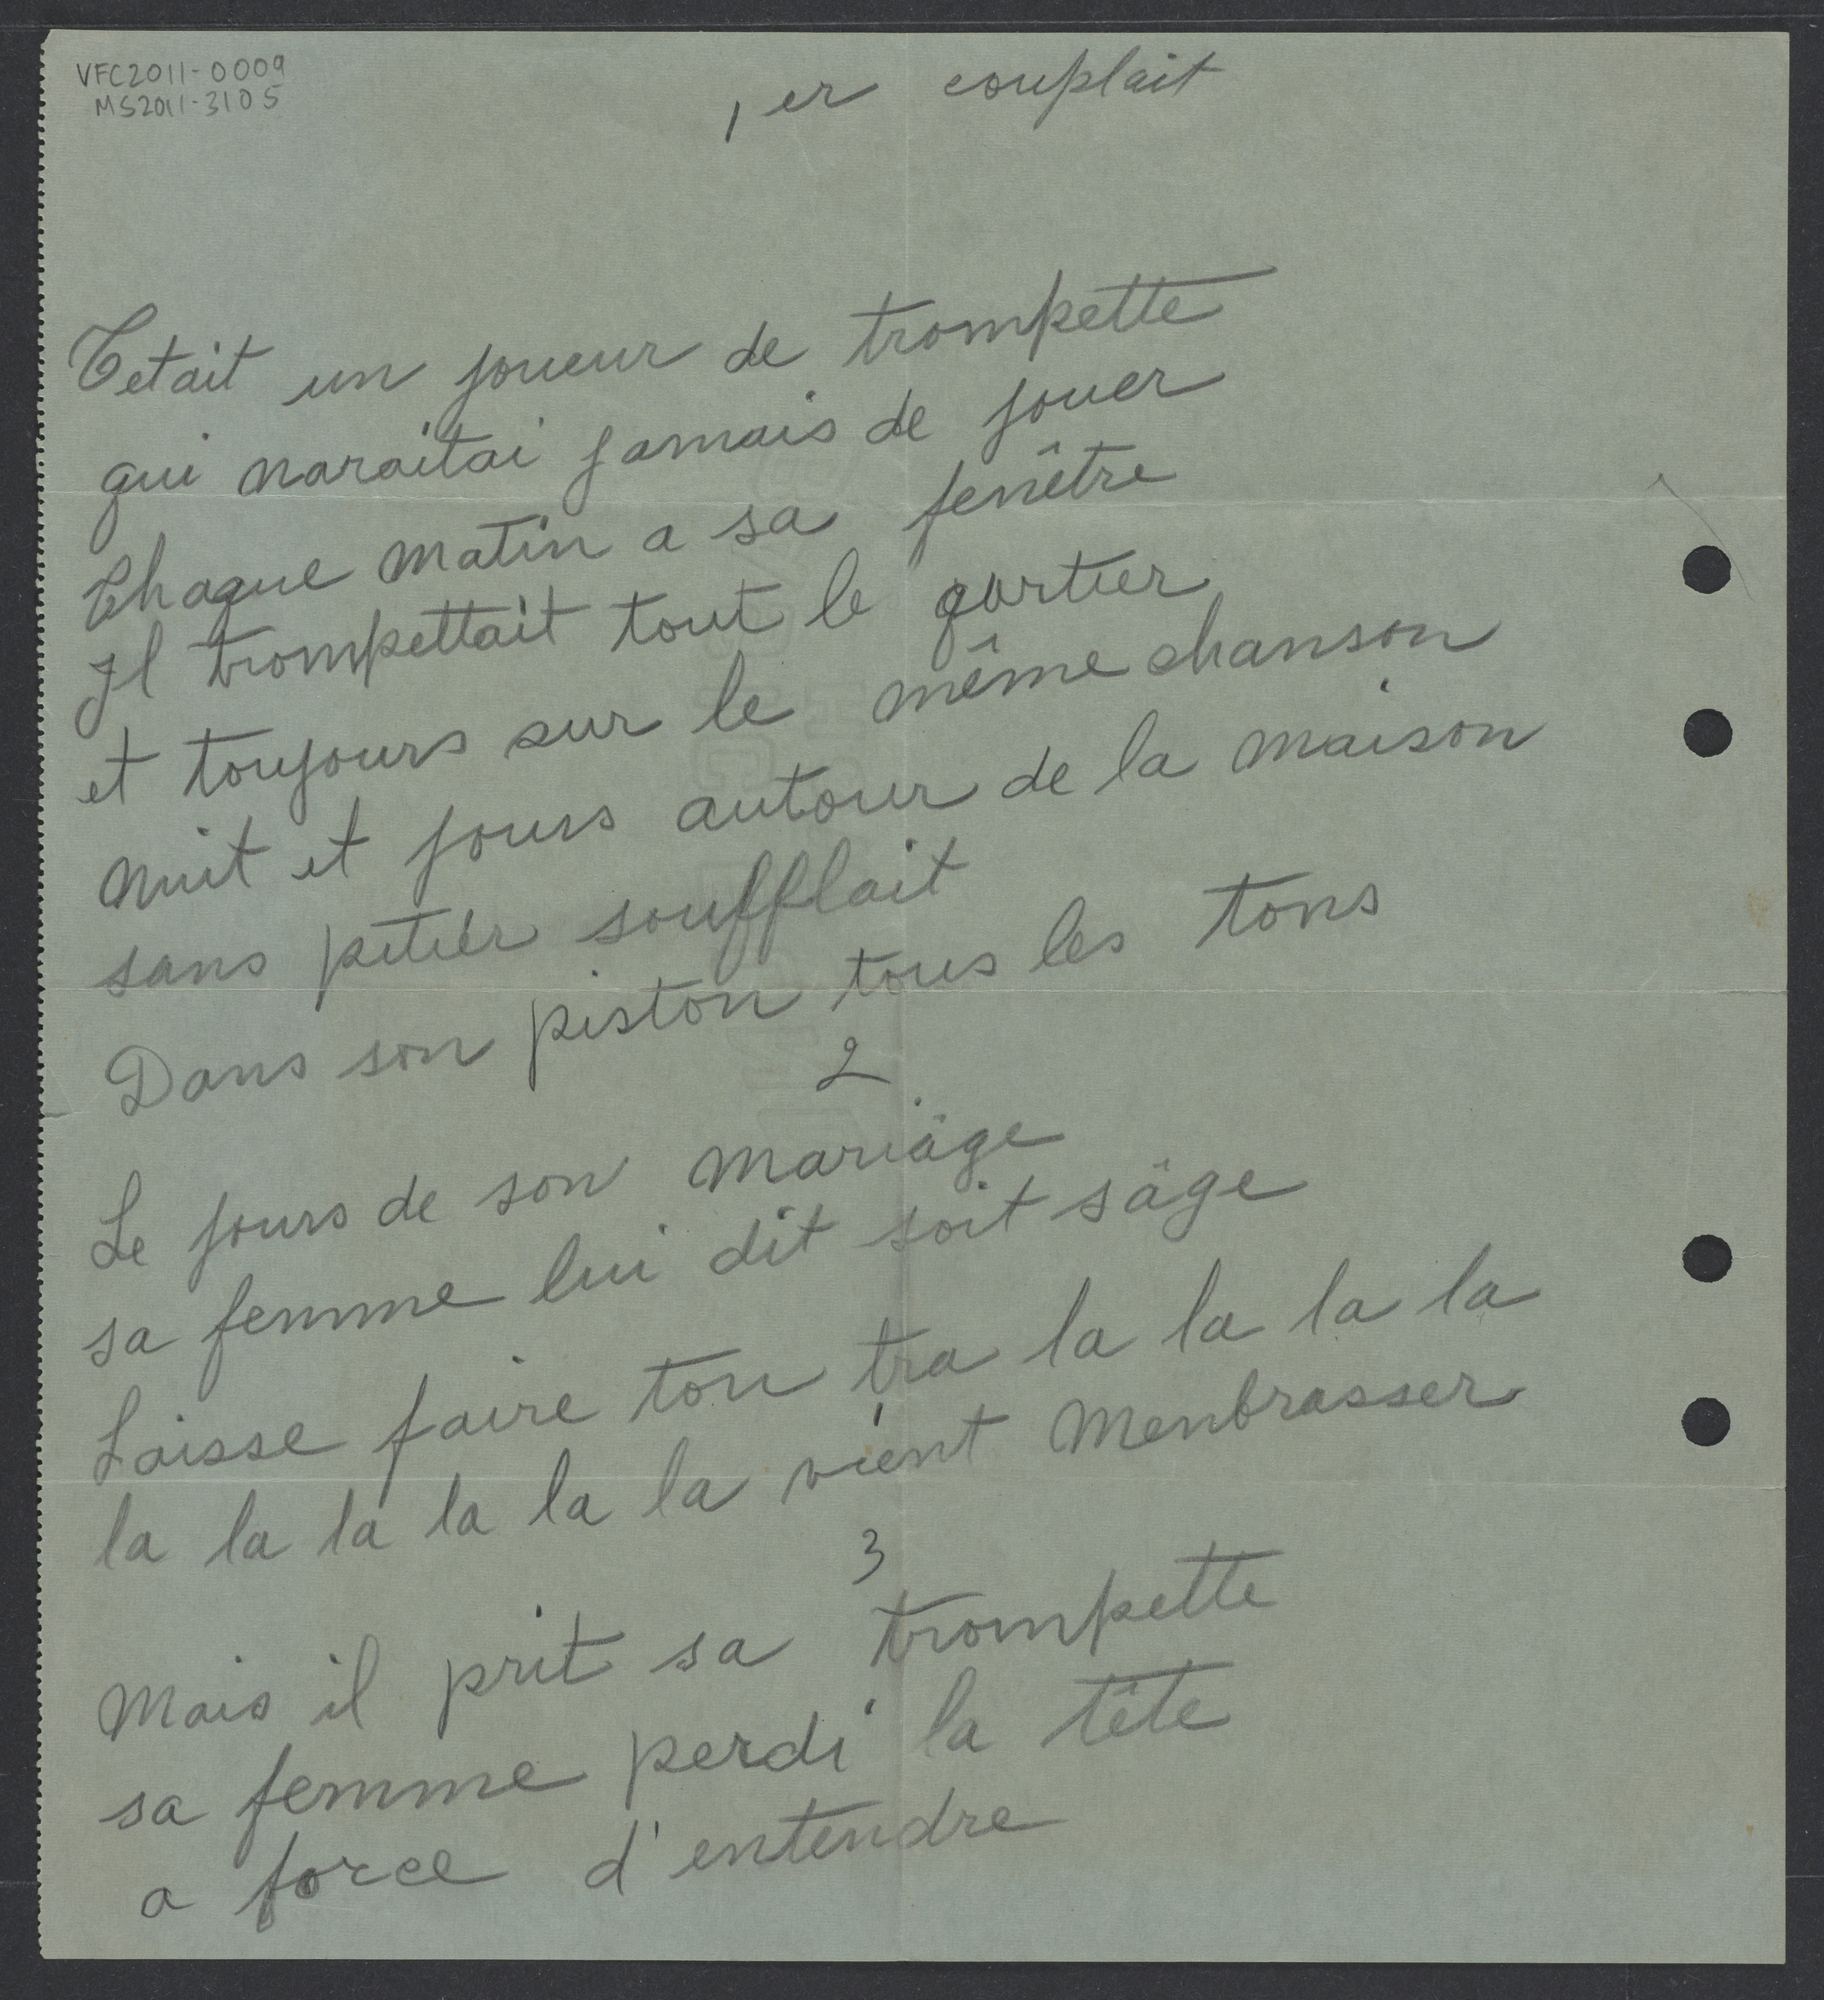 VFC2011-0009
MS2011-3105
1er couplait
Cetait un joueur de trompette
qui naraitai jamais de jouer
Chaque matin a sa fenêtre
Il trompettait tout le qartier
et toujours sur le même chanson
nuit et jours autour de la maison
sans pitiér soufflait
Dans son piston tous les tons
2
Le jours de son mariâge
sa femme lui dit soit sâge
Laisse faire ton tra la la la la
la la la la la la vient menbrasser
3
Mais il prit sa trompette
sa femme perdi la tête
a force d'entendre